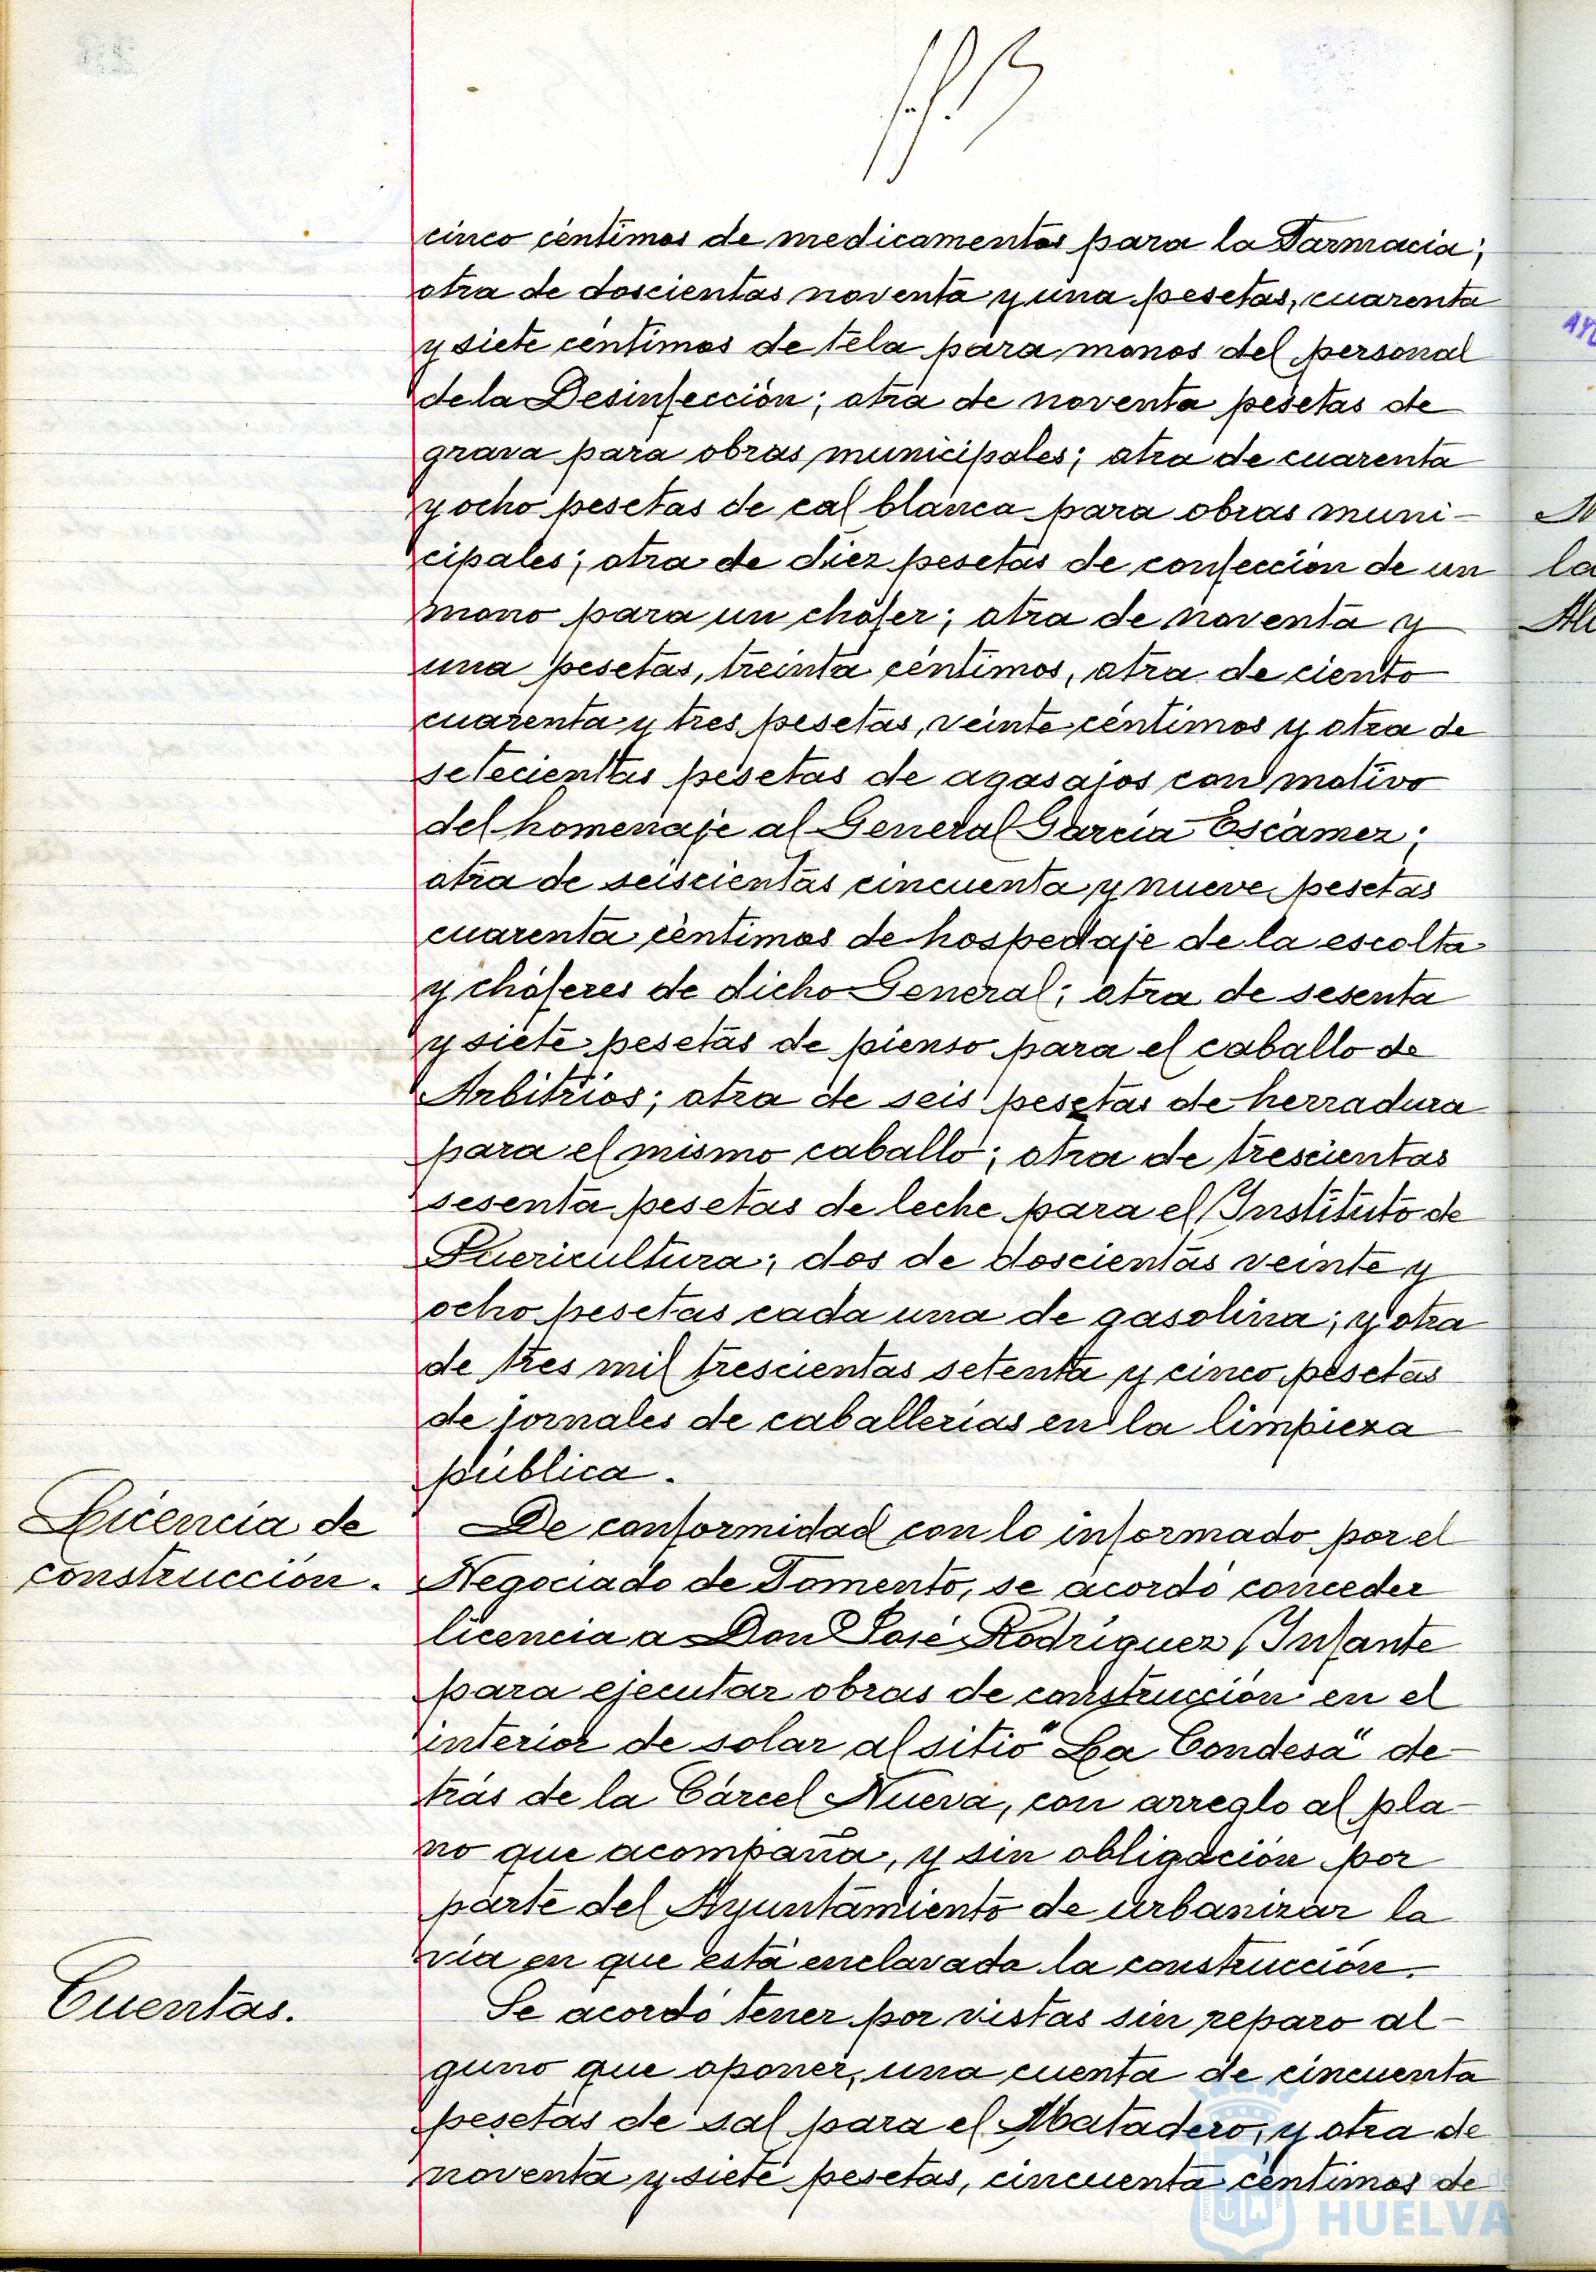 cinco céntimos de medicamentos para la Farmacia;
otra de doscientas noventa y una pesetas, cuarenta
y siete céntimos de tela para monos del personal
de la Desinfección; otra de noventa pesetas de
grava para obras municipales; otra de cuarenta
y ocho pesetas de cal blanca para obras muni-
cipales; otra de diez pesetas de confección de un
mono para un chófer; otra de noventa y
una pesetas, treinta céntimos, otra de ciento
cuarenta y tres pesetas, veinte céntimos y otra de
setecientas pesetas de agasajos con motivo
del homenaje al General García Escámez;
otra de seiscientas cincuenta y nueve pesetas
cuarenta céntimos de hospedaje de la escolta
y chóferes de dicho General; otra de sesenta
y siete pesetas de pienso para el caballo de
Arbitrios; otra de seis pesetas de herradura
para el mismo caballo; otra de trescientas
sesenta pesetas de leche para el Instituto de
Puericultura; dos de doscientas veinte y
ocho pesetas cada una de gasolina; y otra
de tres mil trescientas setenta y cinco pesetas
de jornales de caballerías en la limpieza
pública.
Licencia de
construcción.
De conformidad con lo informado por el
Negociado de Fomento, se acordó conceder
licencia a Don José Rodríguez Infante
para ejecutar obras de construcción en el
interior de solar al sitio "La Condesa" de-
trás de la Cárcel Nueva, con arreglo al pla-
no que acompaña, y sin obligación por
parte del Ayuntamiento de urbanizar la
vía en que está enclavada la construcción.
Cuentas.
Se acordó tener por vistas sin reparo al-
guno que oponer, una cuenta de cincuenta
pesetas de sal para el Matadero, y otra de
noventa y siete pesetas, cincuenta céntimos de
la
HUELVA